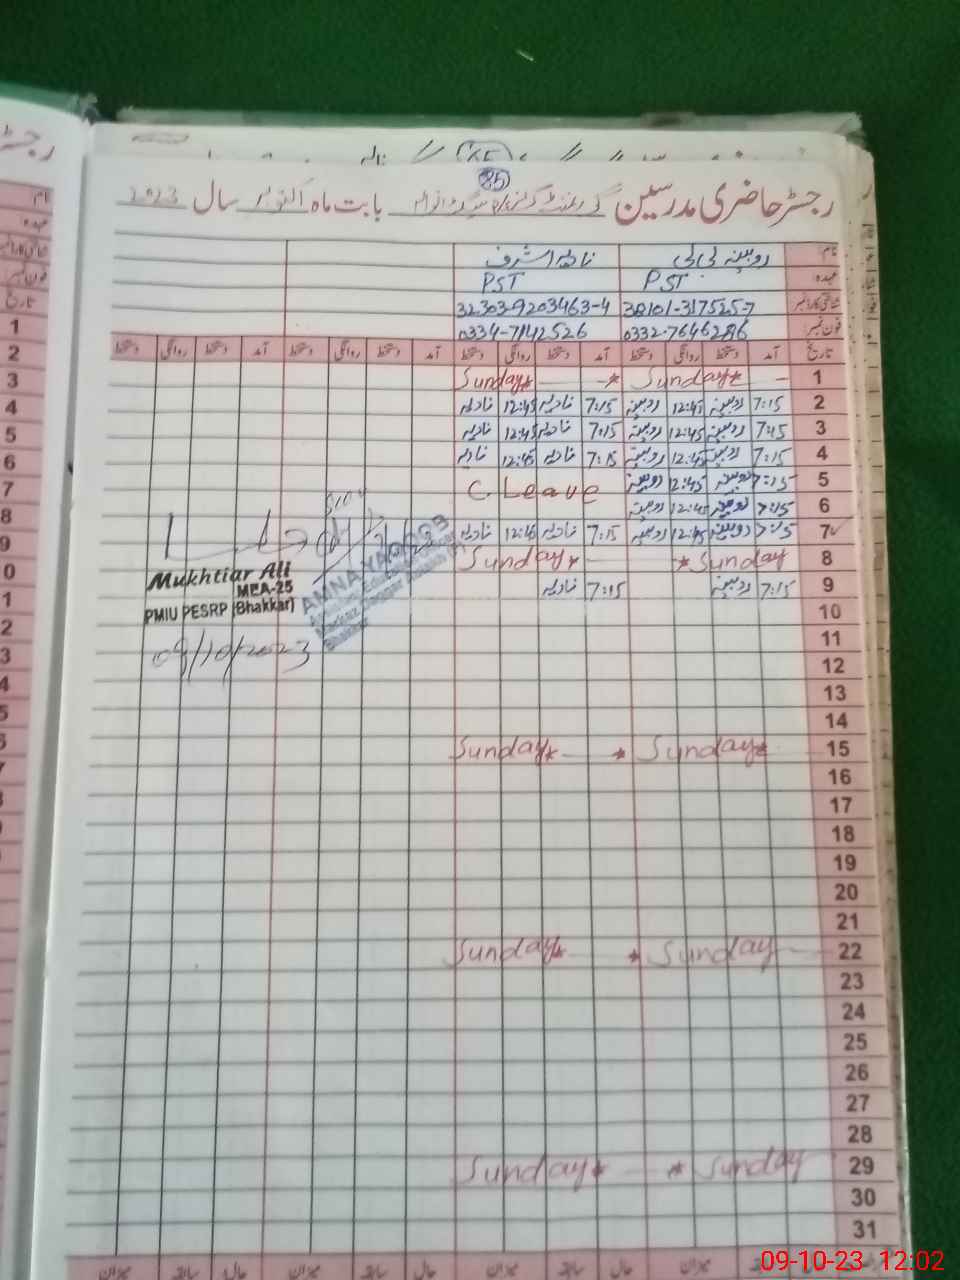 85
رجسٹر حاضری مدرسین گورنمنٹ گرلز بابت ماہ اکتوبر سال 2023
نام روبینہ بی بی نادیہ اشرف
عہدہ PST PST
شناختی کارڈ نمبر 38101-317525-7 32303-9203463-4
فون نمبر 0332-7646286 0334-7142526
تاریخ آمد دستخط روانگی دستخط آمد دستخط روانگی دستخط آمد دستخط روانگی دستخط آمد دستخط روانگی دستخط
1 Sunday Sunday
2 7:15 روبینہ 12:45 روبینہ 7:15 نادیہ 12:45 نادیہ
3 7:15 روبینہ 12:45 روبینہ 7:15 نادیہ 12:45 نادیہ
4 7:15 روبینہ 12:45 روبینہ 7:15 نادیہ 12:45 نادیہ
5 7:15 روبینہ 12:45 روبینہ C. Leave
6 7:15 روبینہ 12:45 روبینہ
7 7:15 روبینہ 12:45 روبینہ 7:15 نادیہ 12:45 نادیہ
8 Sunday Sunday
9 7:15 روبینہ 7:15 نادیہ
10
11
12
13
14
15 Sunday Sunday
16
17
18
19
20
21
22 Sunday Sunday
23
24
25
26
27
28
29 Sunday Sunday
30
31
Mukhtiar Ali
MEA-25
PMIU PESRP (Bhakkar)
09/10/2023
AMNA YAQOOB
Bhakkar
حال سابقہ میزان حال سابقہ میزان
09-10-23 12:02